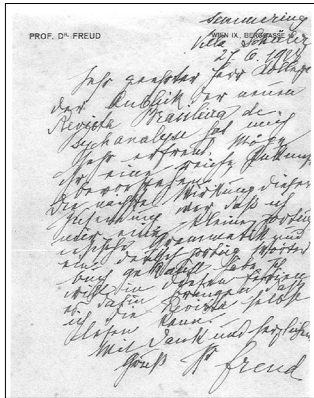 Semmering
PROF. DR. FREUD
WIEN IX., BERGGASSE 19
Villa Schüler
27. 6. 1928
Sehr geehrter Herr College
der Anblick der neuen
Revista Brasileira de
Psychanalyse hat mich
sehr erfreut. Möge
ihr eine reiche Zukunft
bevorstehen.
Die nächste Wirkung dieser
war daß ich
mir eine kleine portug
Grammatik und
ein deutsch portug Wörter
buch habe. Ich
will in diesen Ferien
es dahin bringen, daß
ich die Revista selbst
lesen kann.
Mit Dank und herzlichem
Gruß Ihr Freud